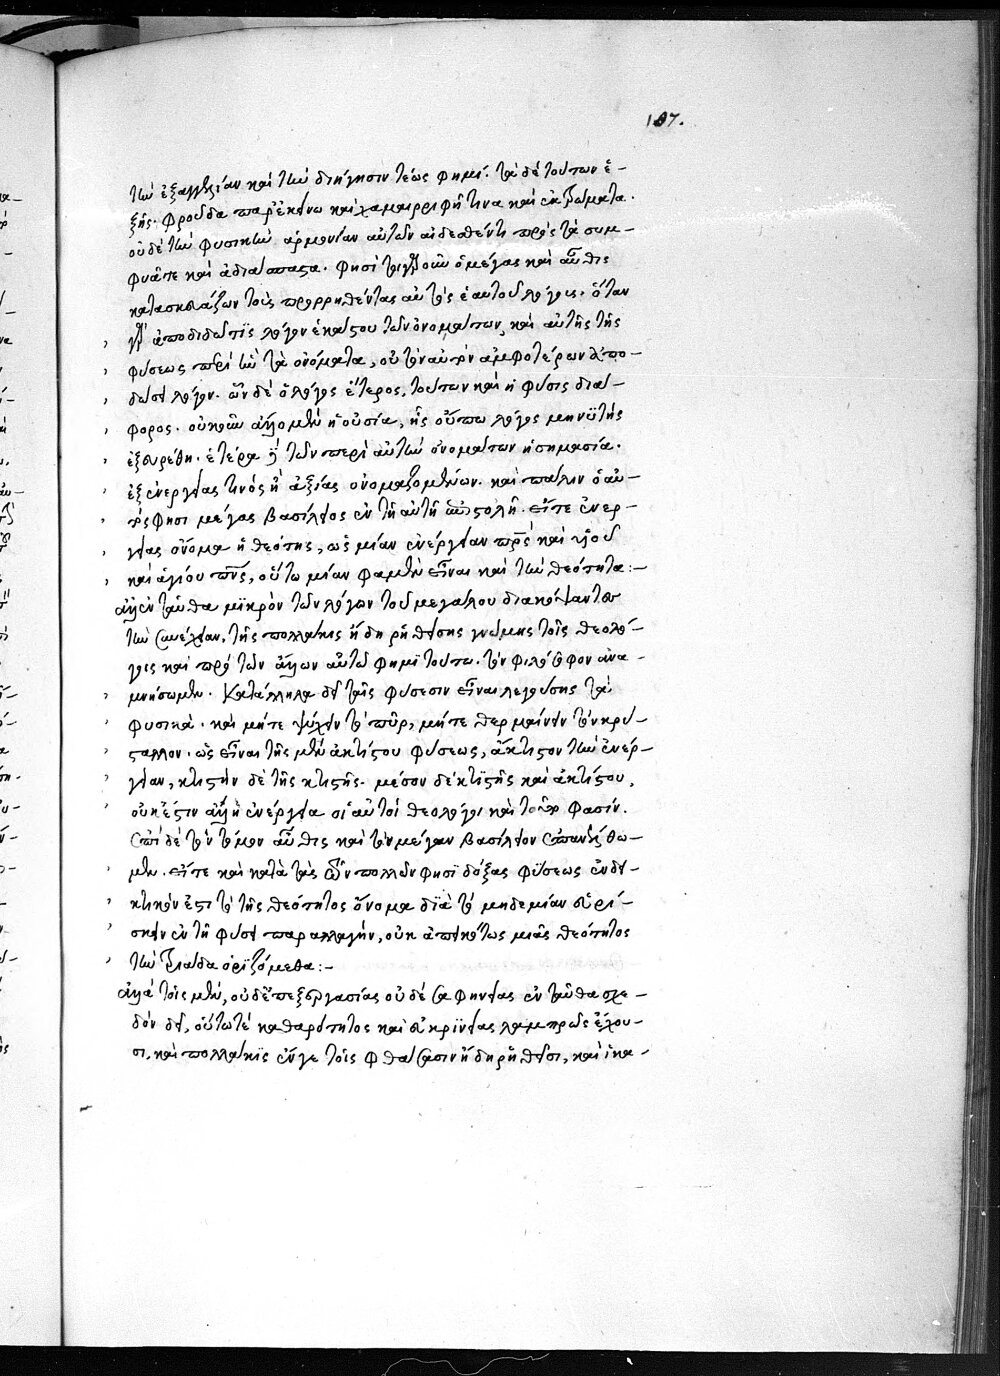 107.
τὴν ἐξαγγελίαν καὶ τὴν διήγησιν τέως φημί. τὰ δὲ τούτων ἑ-
ξῆς. φροῦδα παρ' ἐκείνω καὶ χαμαιρριφῆ τινα καὶ ἐκτρώματα.
οὐδὲ τὴν φυσικὴν ἁρμονίαν αὐτῶν αἰδεσθέντι πρὸς τὰ συμ-
φυᾶ τε καὶ ἀδιάσπαστα. φησὶ τοιγαροῦν ὁ μέγας καὶ αὖθις
κατασκευάζων τοὺς προρρηθέντας αὐτὸς ἑαυτοῦ λόγους. ὅταν
γὰρ ἀποδιδῶ τίς λόγον ἑκάστου τῶν ὀνομάτων, καὶ αὐτῆς τῆς
φύσεως περὶ ἣν τὰ ὀνόματα, οὐ τὸν αὐτὸν ἀμφοτέρων ἀπο-
δώσει λόγον. ὧν δὲ ὁ λόγος ἕτερος, τούτων καὶ ἡ φύσις διά-
φορος. οὐκοῦν ἄλλο μὲν ἡ οὐσία, ἧς οὔπω λόγος μηνϋτὴς
ἐξευρέθη. ἑτέρα δὲ τῶν περὶ αὐτὴν ὀνομάτων ἡ σημασία.
ἐξ ἐνεργείας τινὸς ἢ ἀξίας ὀνομαζομένων. καὶ πάλιν ὁ αὐ-
τός φησι μέγας βασίλειος ἐν τῆ αὐτῆ ἐπιστολῆ. εἴτε ἐνερ-
γείας ὄνομα ἡ θεότης, ὡς μίαν ἐνέργειαν πρς καὶ υἱοῦ
καὶ ἁγίου πνς, οὕτω μίαν φαμὲν εἶναι καὶ τὴν θεότητα:-
ἀλλ' ἐνταῦθα μϊκρὸν τῶν λόγων τοῦ μεγάλου διακόψαντες
τὴν συνέχειαν, τῆς πολλάκις ἤδη ῥηθείσης γνώμης τοῖς θεολό-
γοις καὶ πρὸ τῶν ἄλλων αὐτῶ φημϊ τούτω. τὸν φιλόσοφον ἀνα-
μνήσωμεν. Κατάλληλα δὲ ταῖς φύσεσιν εἶναι λεγούσης τὰ
φυσικά. καὶ μήτε ψύχειν τὸ πῦρ, μήτε θερμαίνειν τὸν κρύ-
σταλλον. ὡς εἶναι τῆς μὲν ἀκτίστου φύσεως, ἄκτιστον τὴν ἐνέρ-
γειαν, κτιστὴν δὲ τῆς κτιστῆς. μέσον δὲ κτϊστῆς καὶ ἀκτίστου,
οὐκ ἔστιν ἄλλη ἐνέργεια οἱ αὐτοὶ θεολόγοι καὶ τοῦτο φασίν.
ἐπὶ δὲ τὸν τόμον αὖθις καὶ τὸν μέγαν βασίλειον ἐπανέλθω-
μεν. εἴτε καὶ κατὰ τὰς τῶν πολλῶν φησϊ δόξας φύσεως ἐνδει-
κτικόν ἐστι τὸ τῆς θεότητος ὄνομα διὰ τὸ μηδεμίαν εὑρί-
σκειν ἐν τῆ φύσει παραλλαγήν, οὐκ ἀπεικότως μιᾶς θεότητος
τὴν τριάδα ὁρϊζόμεθα:-
ἀλλὰ τοῖς μὲν, οὐδ' ἐπεξεργασίας οὐδὲ σαφηνείας ἐνταῦθα σχε-
δὸν δεῖ, οὕτω τὲ καθαρότητος καὶ εὐκρϊνείας λαμπρῶς ἔχου-
σι, καὶ πολλάκϊς ἔνγε τοῖς φθάσασιν ἤδη ῥηθεῖσι, καὶ ἱκα-